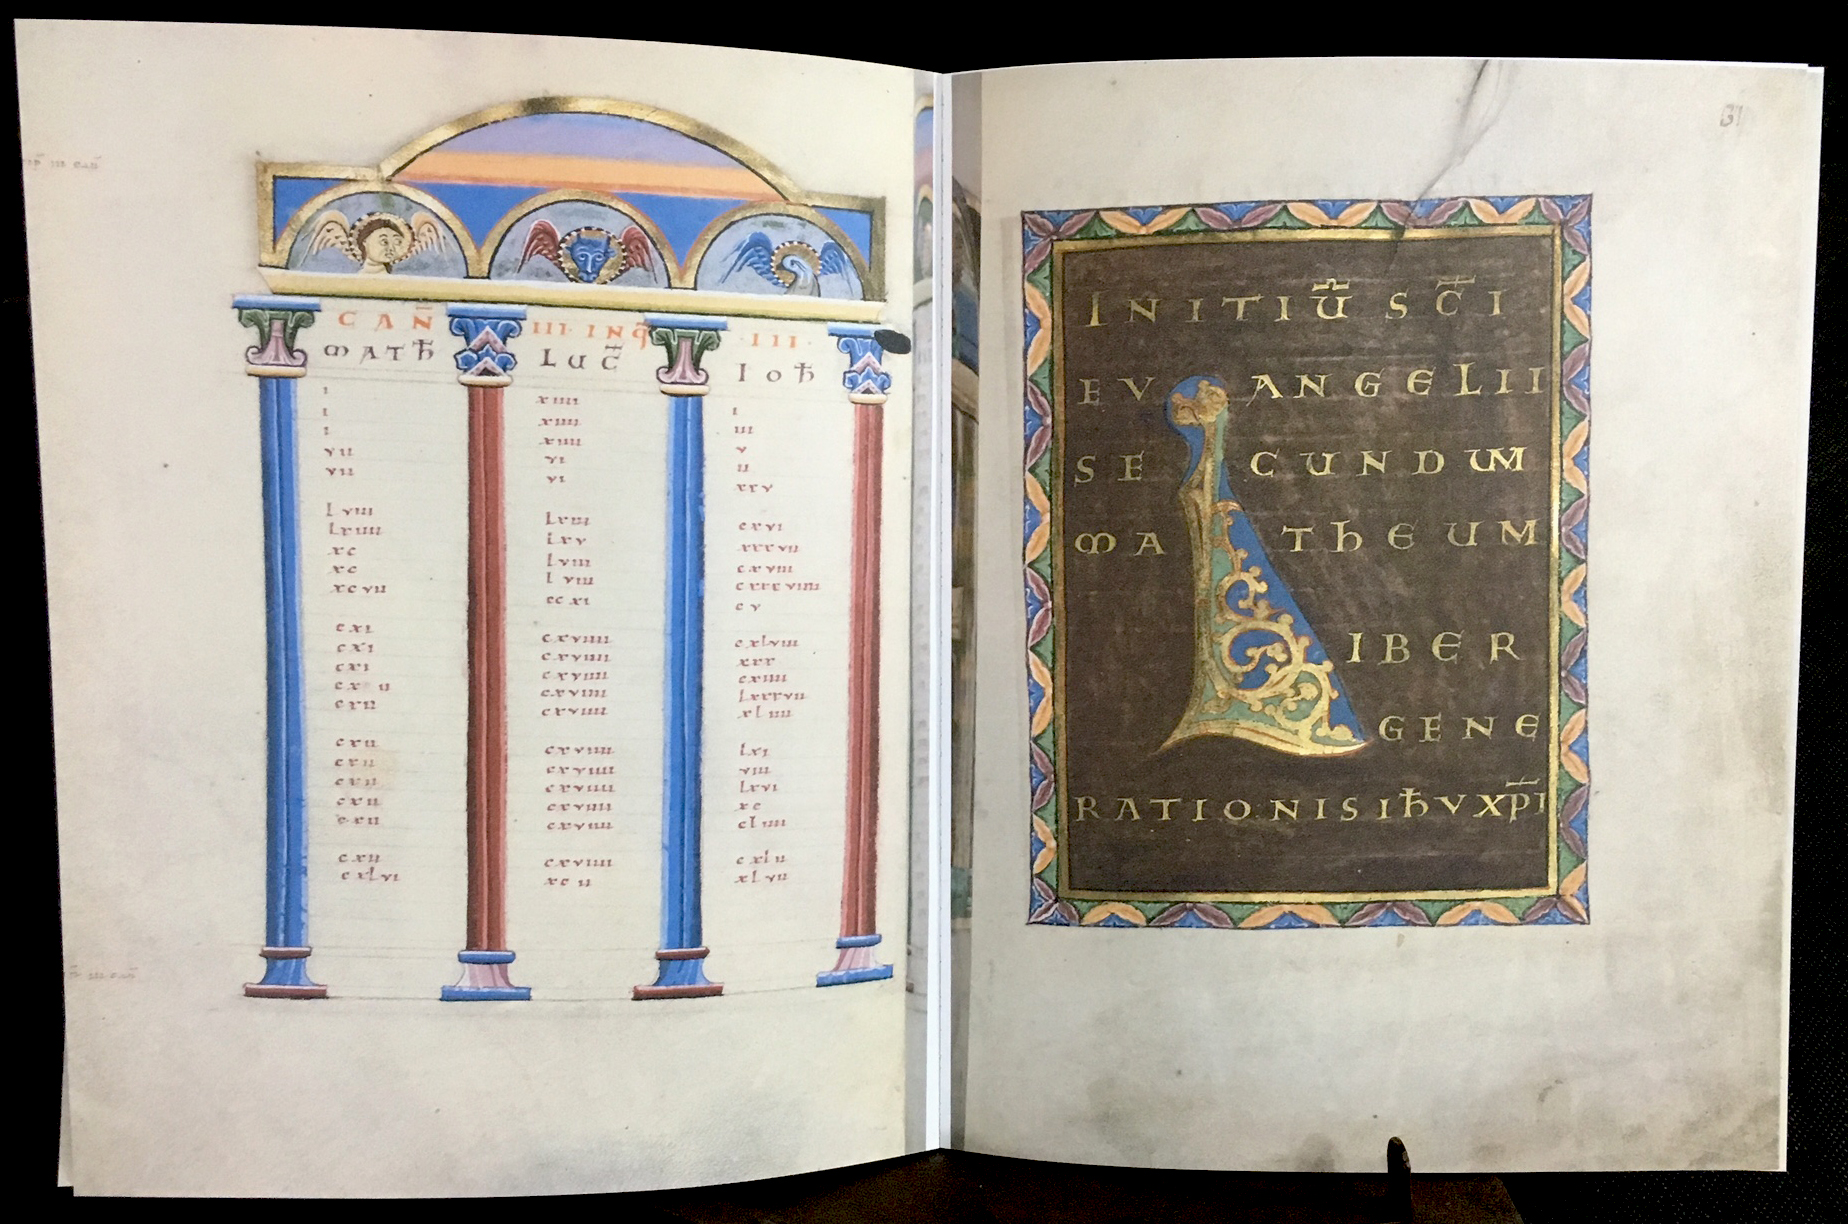 CAN̄ III· INQ̄ ·III·
MATH̄ LUC̄ IOH̄
i xiiii i
i xiiii iii
i xiiii v
vii vi ii
vii vi xxv
Lviiii Lxiii cxvi
Lxiiii Lxv xxxvii
xc Lviii cxviii
xc Lviii cxxxviiii
xcvii ccxi cv
cxi cxviiii cxlviii
cxi cxviiii xxx
cxi cxviiii cxiiii
cxii cxviiii Lxxxvii
cxii cxviiii xliiii
cxii cxviiii Lxi
cxii cxviiii viii
cxii cxviiii Lxvi
cxii cxviiii xc
cxii cxviiii cliiii
cxii cxviiii cxlii
cxlvi xcii xlvii
31
INITIŪ SC̄I
EVANGELII
SECUNDUM
MATHEUM
LIBER
GENE
RATIONIS IH̄V XP̄I